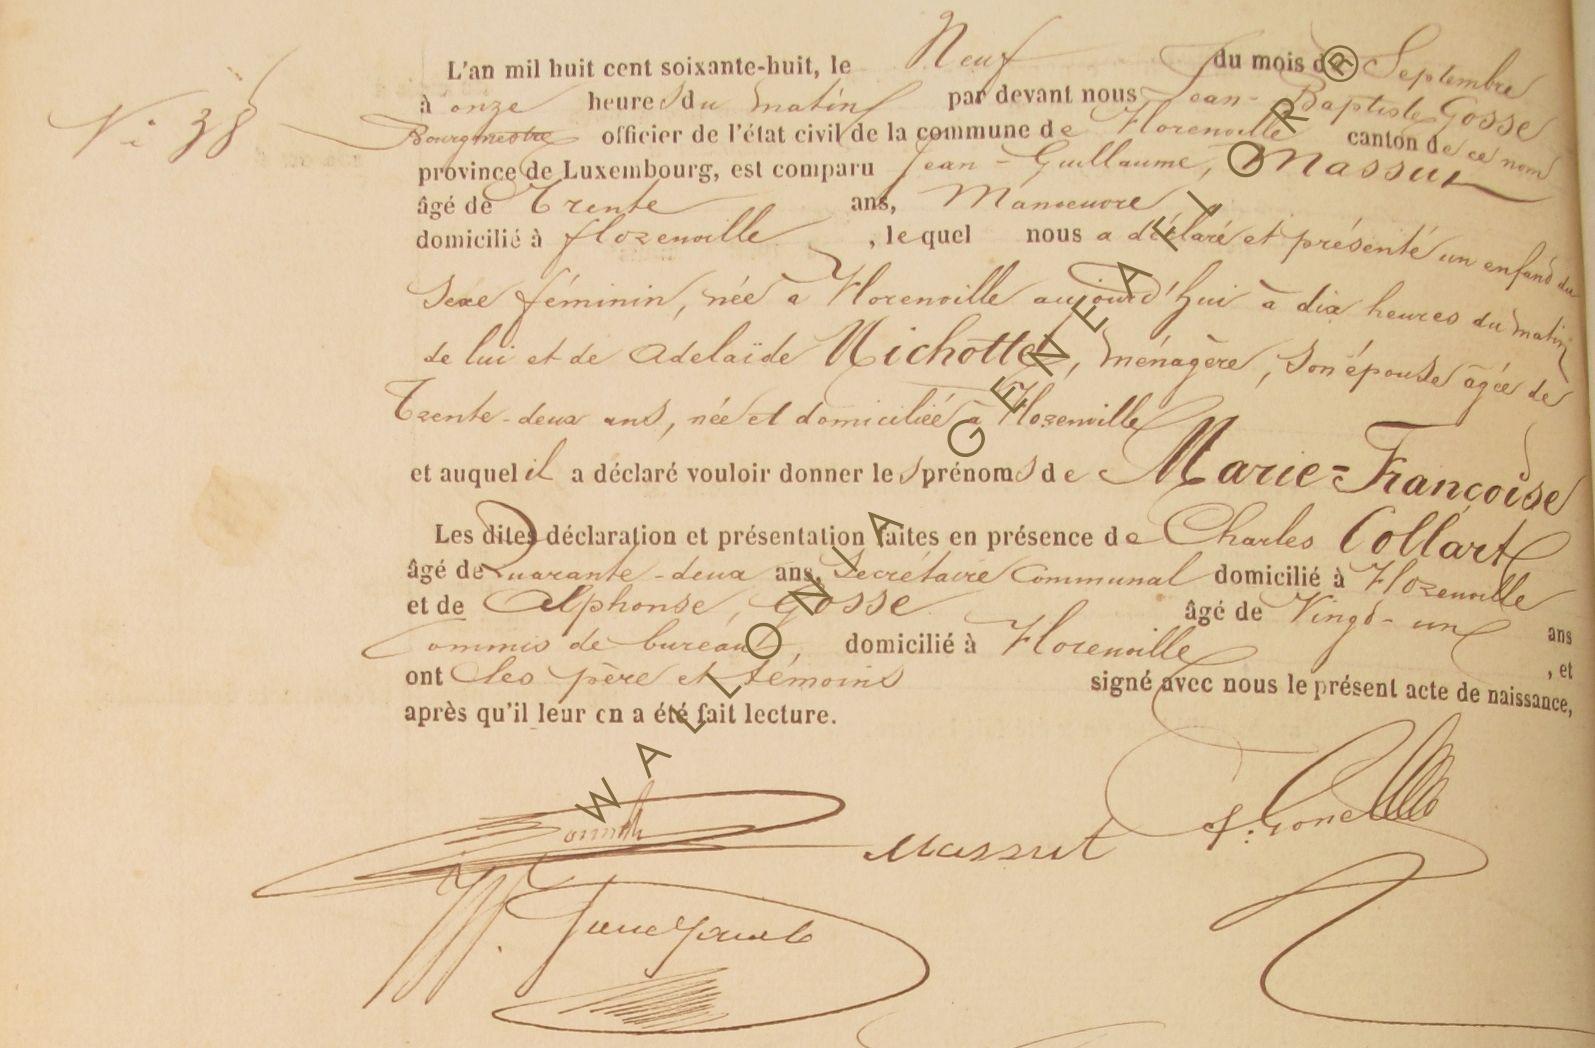 L'an mil huit cent soixante-huit, le Neuf du mois de Septembre
N° 38
à onze heures du matin par devant nous Jean-Baptiste Gosse
Bourgmestre officier de l'état civil de la commune de Florenville canton de ce nom
province de Luxembourg, est comparu Jean-Guillaume, Massut
âgé de Trente ans, Manœuvre
domicilié à florenville, lequel nous a déclaré et présenté un enfant du
Sexe féminin, née à Florenville aujourd'hui à dix heures du matin
de lui et de Adelaïde Michotte, ménagère, son épouse âgée de
Trente-deux ans, née et domiciliée à Florenville
et auquel il a déclaré vouloir donner les prénoms de Marie=Françoise
Les dites déclaration et présentation faites en présence de Charles Collart
âgé de Quarante-deux ans, Secrétaire Communal domicilié à Florenville
et de Alphonse, Gosse âgé de Vingt-un ans
Commis de bureau, domicilié à Florenville, et
ont les père et témoins signé avec nous le présent acte de naissance,
après qu'il leur en a été fait lecture.
Massut
WALLONIA GENEAFLOR ®